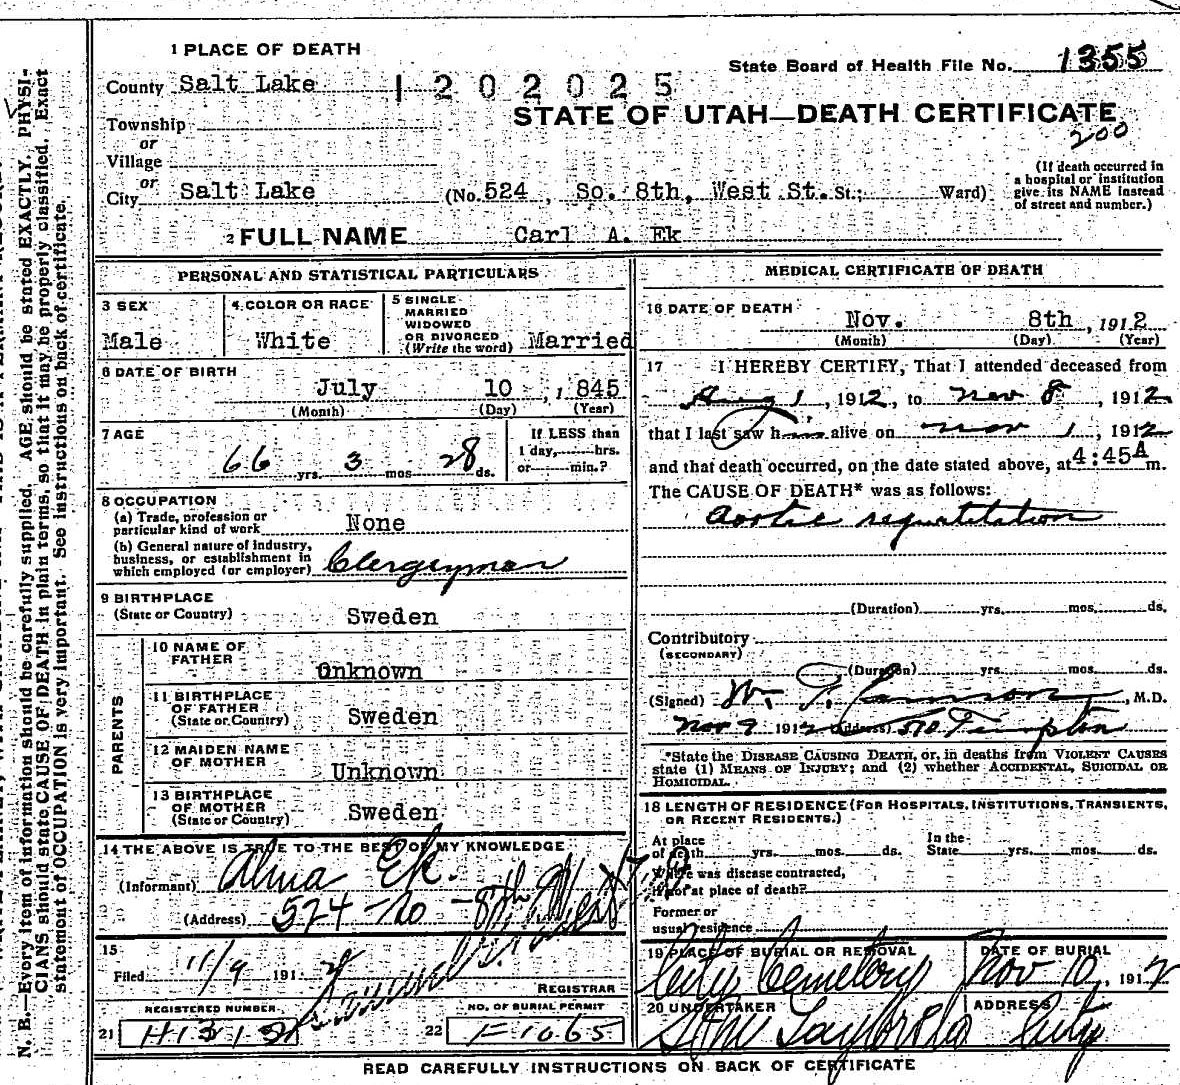 1 PLACE OF DEATH
State Board of Health File No. 1355
County Salt Lake 1202025
STATE OF UTAH—DEATH CERTIFICATE
200
Township
or
Village
or
City Salt Lake (No. 524, So. 8th, West St. St.; Ward)
(If death occurred in
a hospital or institution
give its NAME instead
of street and number.)
2 FULL NAME Carl A. Ek
PERSONAL AND STATISTICAL PARTICULARS
3 SEX
Male
4 COLOR OR RACE
White
5 SINGLE
MARRIED
WIDOWED
OR DIVORCED
(Write the word) Married
6 DATE OF BIRTH
July 10, 1845
(Month) (Day) (Year)
7 AGE
66 yrs. 3 mos 28 ds.
If LESS than
1 day, hrs.
or min.?
8 OCCUPATION
(a) Trade, profession or
particular kind of work None
(b) General nature of industry,
business, or establishment in
which employed (or employer) Clergeyman
9 BIRTHPLACE
(State or Country) Sweden
PARENTS
10 NAME OF
FATHER Unknown
11 BIRTHPLACE
OF FATHER
(State or Country) Sweden
12 MAIDEN NAME
OF MOTHER Unknown
13 BIRTHPLACE
OF MOTHER
(State or Country) Sweden
14 THE ABOVE IS TRUE TO THE BEST OF MY KNOWLEDGE
(Informant) Alma Ek.
(Address) 524 - So - 8th West
15
Filed 11/9 191 2
REGISTRAR
REGISTERED NUMBER
21 H1312
NO. OF BURIAL PERMIT
22 F1065
MEDICAL CERTIFICATE OF DEATH
16 DATE OF DEATH
Nov. 8th, 1912
(Month) (Day) (Year)
17 I HEREBY CERTIFY, That I attended deceased from
Aug 1, 1912, to Nov 8, 1912
that I last saw h alive on Nov 1, 1912
and that death occurred, on the date stated above, at 4:45A m.
The CAUSE OF DEATH* was as follows:
Aortic regurtitation
(Duration) yrs. mos. ds.
Contributory
(SECONDARY)
(Duration) yrs. mos. ds.
(Signed) W. F., M.D.
Nov 9 1912 (Address)
*State the DISEASE CAUSING DEATH, or, in deaths from VIOLENT CAUSES
state (1) MEANS OF INJURY; and (2) whether ACCIDENTAL, SUICIDAL OR
HOMICIDAL.
18 LENGTH OF RESIDENCE (FOR HOSPITALS, INSTITUTIONS, TRANSIENTS,
OR RECENT RESIDENTS.)
At place
of death yrs. mos. ds.
In the
State yrs. mos. ds.
Where was disease contracted,
if not at place of death?
Former or
usual residence
19 PLACE OF BURIAL OR REMOVAL
City Cemetery
DATE OF BURIAL
Nov 10, 1912
20 UNDERTAKER
Taylor
ADDRESS
City
READ CAREFULLY INSTRUCTIONS ON BACK OF CERTIFICATE
N. B.—Every item of information should be carefully supplied. AGE should be stated EXACTLY. PHYSI-
CIANS should state CAUSE OF DEATH in plain terms, so that it may be properly classified. Exact
statement of OCCUPATION is very important. See instructions on back of certificate.